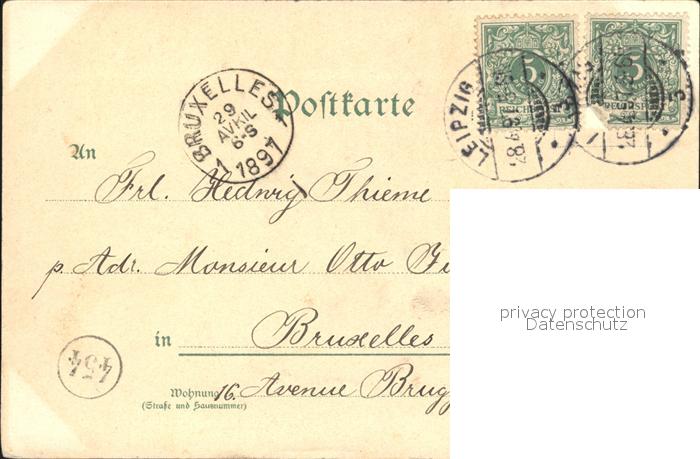 Postkarte
BRUXELLES 1
29
AVRIL
6-S
1897
5
REICHSPOST
5
REICHSPOST
LEIPZIG
An
Frl. Hedwig Thieme
p. Adr. Monsieur Otto
in Bruxelles
privacy protection
Datenschutz
454
Wohnung 16. Avenue Brug
(Straße und Hausnummer)